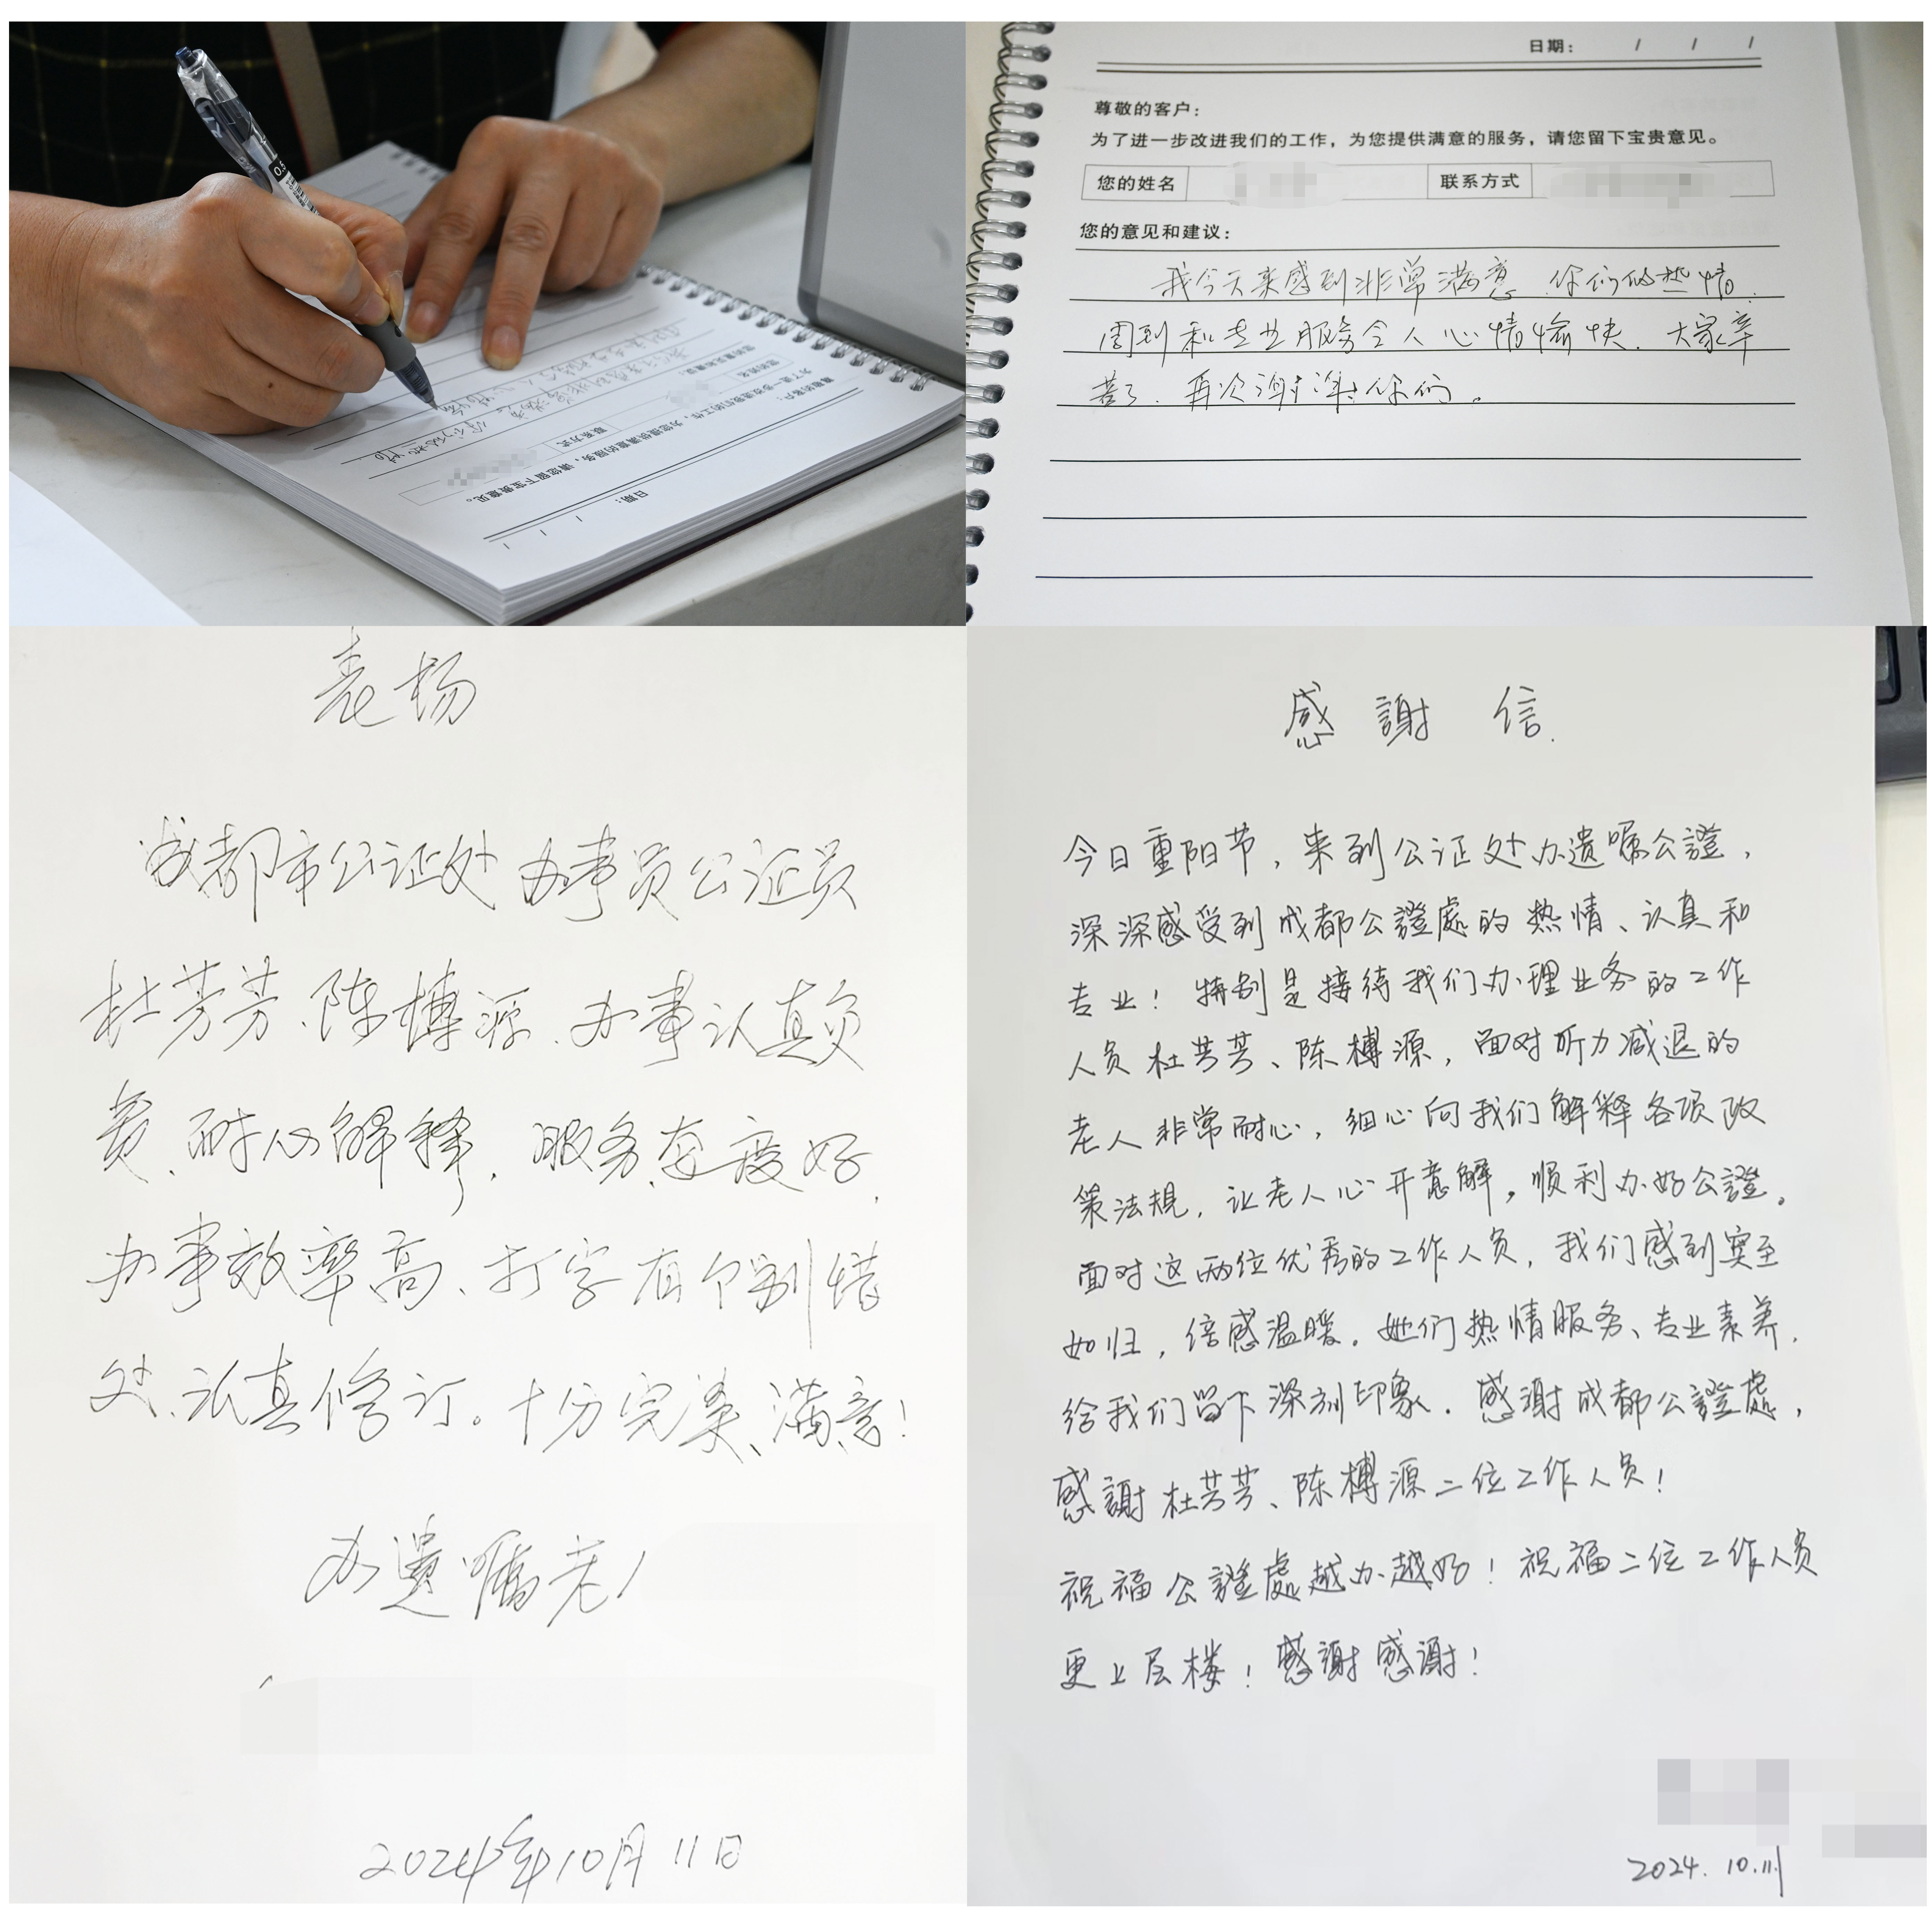 日期： / / /
尊敬的客户：
为了进一步改进我们的工作，为您提供满意的服务，请您留下宝贵意见。
您的姓名 联系方式
您的意见和建议：
我今天来感到非常满意 你们的热情、
周到和专业服务令人心情愉快. 大家辛
苦了. 再次谢谢你们.
0.5
日期： / / /
尊敬的客户：
为了进一步改进我们的工作，为您提供满意的服务，请您留下宝贵意见。
联系方式
表扬
成都市公证处办事员公证员
杜芳芳、陈榑源、办事认真负
责、耐心解释、服务态度好、
办事效率高、打字有个别错
处、认真修订。十分完美、满意！
办遗嘱老人
2024年10月11日
感謝信.
今日重阳节，来到公证处办遗嘱公證，
深深感受到成都公證處的热情、认真和
专业！特别是接待我们办理业务的工作
人员杜芳芳、陈榑源，面对听力减退的
老人非常耐心，细心向我们解释各项政
策法规，让老人心开意解，顺利办好公證。
面对这两位优秀的工作人员，我们感到宾至
如归，倍感温暖。她们热情服务、专业素养，
给我们留下深刻印象。感謝成都公證處，
感謝杜芳芳、陈榑源二位工作人员！
祝福公證處越办越好！祝福二位工作人员
更上层楼！感謝感謝！
2024.10.11